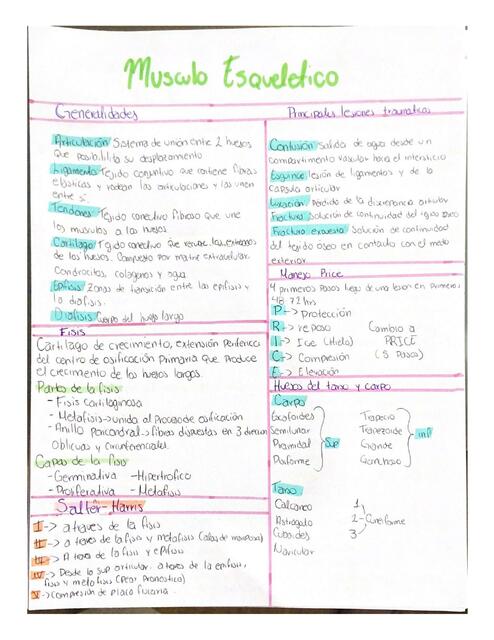 Musculo Esqueletico
Generalidades
Articulación Sistema de unión entre 2 huesos
que posibilita su desplazamiento
Ligamento Tejido conjuntivo que contiene fibras
elasticas y rodean las articulaciones y las unen
entre si.
Tendones Tejido conectivo fibroso que une
los musculos a los huesos
Cartilago Tejido conectivo que recubre los extremos
de los huesos. Compuesto por matriz extracelular
Condrocitos, colagenos y agua
Epifisis Zonas de transición entre las epifisis y
la diafisis.
Diafisis Cuerpo del hueso largo
Fisis
Cartilago de crecimiento, extensión periferica
del centro de osificación Primaria que produce
el crecimiento de los huesos largos.
Partes de la fisis
- Fisis cartilaginosa
- Metafisis → unida al Proceso de osificación
- Anillo pericondral → fibras dispuestas en 3 direccion
Oblicuas y circunferenciales
Capas de la fisis
- Germinativa - Hipertrofico
- Proliferativa - Metafisis
Salter-Harris
I → a traves de la fisis
II → a traves de la fisis y metafisis (alas de mariposa)
III → A traves de la fisis y epifisis
IV → Desde la sup articular. a traves de la epifisis,
fisis y metafisis (Peor Pronostico)
V → compresión de placa fisiaria.
Principales lesiones traumaticas
Contusión Salida de agua desde un
compartimiento vascular hacia el intersticio
Esguince lesión de ligamentos y de la
capsula articular
Luxación Pérdida de la discrepancia articular
Fractura Solución de continuidad del tejido óseo
Fractura expuesta Solución de continuidad
del tejido óseo en contacto con el medio
exterior
Manejo Price
4 primeros pasos luego de una lesion en primeras
48-72 hrs
P → Protección
R → reposo
I → Ice (Hielo)
C → Compresión
E → Elevación
Cambio a
PRICE
(5 Pasos)
Huesos del tarso y carpo
Carpo
Escafoides
Semilunar
Piramidal
Pisiforme
Sup
Trapecio
Trapezoide
Grande
Ganchoso
inf
Tarso
Calcaneo
Astragalo
Cuboides
Navicular
1
2 - Cuneiforme
3